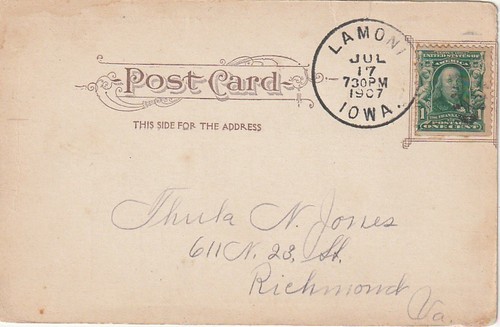 LAMONI
JUL
17
730PM
1907
IOWA.
UNITED STATES OF
AMERICA
1 POSTAGE 1
ONE CENT
Post Card
THIS SIDE FOR THE ADDRESS
Thula N. Jones
611 N. 23, St.
Richmond
Va.